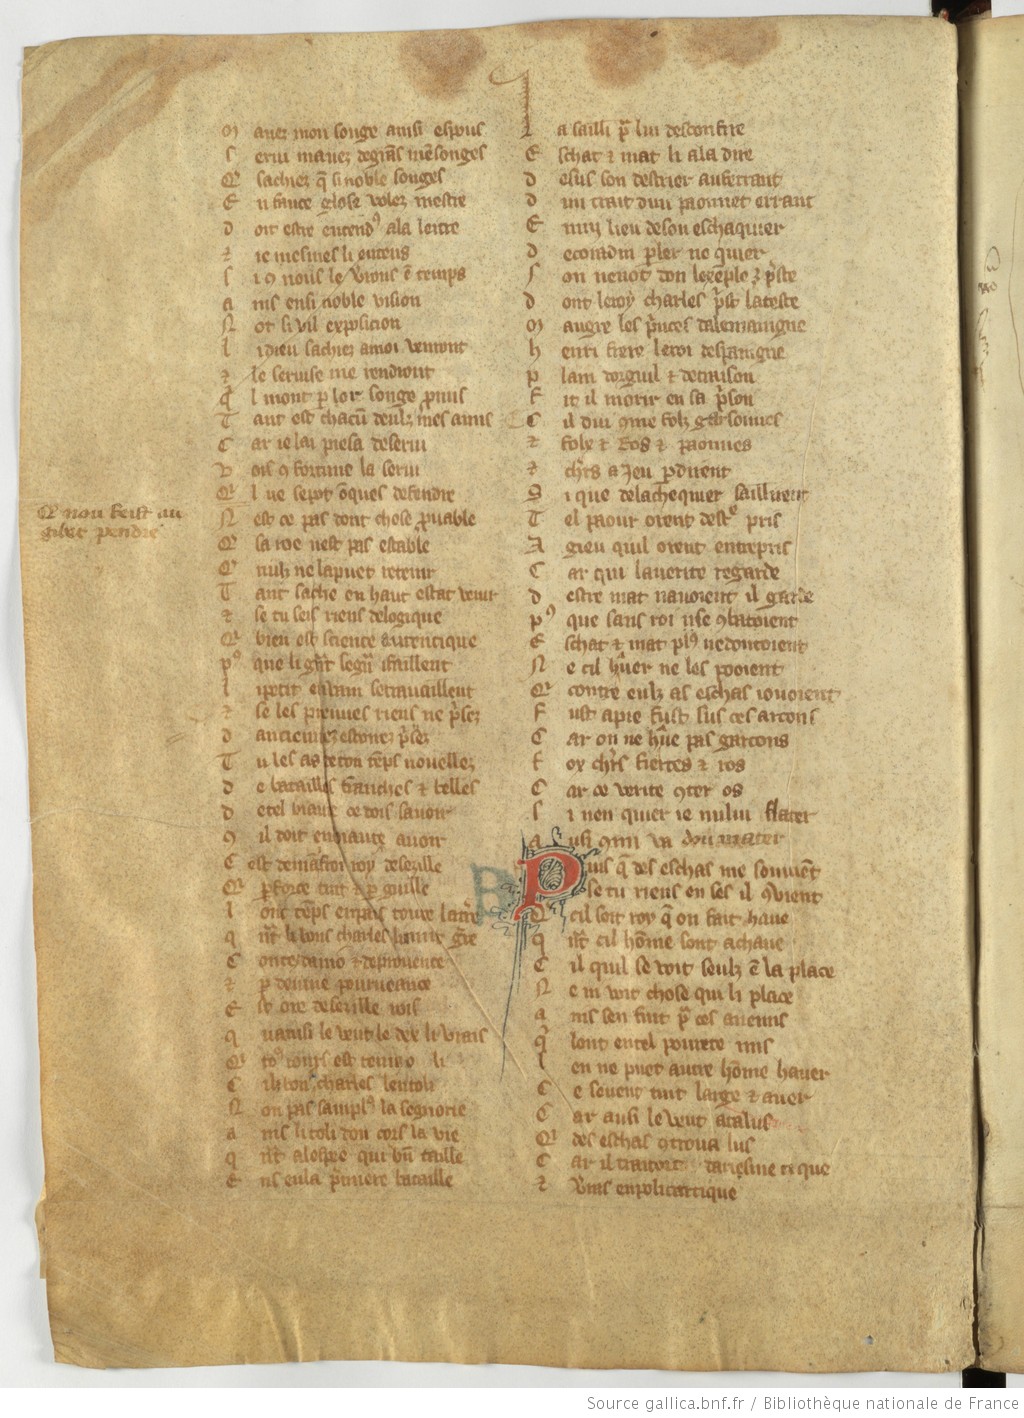 M aues mon songe ainsi espous
S erui mauez de grãs mẽsonges
Q sachiez q̃ si noble songes
E n fauce glose volez mestre
D oit estre entendꝰ a la lettre
⁊ ie mesmes li entens
S i ꝯ nous le vrons ẽ temps
A ins ensi noble vision
N ot si vil exposicion
L i dieu sachiez a moi venront
⁊ le seruise me rendront
Q̃ l mont p̱ lor songe pmis
T ant est chacũ deulz mes amis
C ar ie lai pieca deserui
V ois ꝯ fortune la serui
Q l ne sepot õques defendre
Q nou feist au
gibet pendre
N est ce pas dont chose puable
Q sa roe nest pas estable
Q nulz ne la puet retenir
T ant sache en haut estat venir
⁊ se tu seis riens de logique
Q bien est science autentique
Pꝰ que li gr̃t segñ i faillent
L i petit en vain se trauaillent
⁊ se les preuues riens ne p̃sez
D anciennes estoires p̃sez
T u les as de ton tẽps nouelles
D e batailles franches ⁊ belles
D e tel biaute ce dois sauoir
Q̃ il doit en bataille auoir
C est de mainfroi roy de sezille
Q p̱ force tint ⁊ p̱ guille
L onc tẽps en pais toute la tr̃e
Q n̄t li bons charles li mut gr̃e
C onte daniou ⁊ de prouence
⁊ p̱ deuine pourueance
E st ore de sezille rois
Q uainsi le veut le dex li vrais
Q toꝰ iours est tenuꝰ o li
C il bon charles len toli
N on pas sanplꝰ la segnorie
A ins li toli don cors la vie
Q n̄t a lespee qui bñ taille
E ns en la p̃miere bataille
L a sailli p̃ lui desconfire
E schat ⁊ mat li ala dire
D esus son destrier auferrant
D un trait dun paonnet errant
E nmy lieu de son eschaquier
D e coradin p̱ler ne quier
S on neuot don lexẽple ⁊ p̃ste
D ont le roy charles p̃st la teste
M augre les p̃nces dalemaingne
H enri frere le roi despaingne
P lain dorguil ⁊ de traison
F it il morir en sa p̃son
C il dui ꝯme folz garsonnes
⁊ folz ⁊ Ros ⁊ paonnes
⁊ ch̃rs a ieu p̱dirent
S i que de lachequier saillirent
T el paour orent destᵉ pris
A gieu quil orent entrepris
C ar qui la uerite regarde
D estre mat nauoient il garde
Pꝰ que sans roi i se ꝯbatoient
E schat ⁊ mat plꝰ ne doutoient
N e cil h̃uer ne les pooient
Q contre eulz as eschas iouoient
F ust a pie fust sus ces arcons
C ar on ne h̃ue pas garcons
F ox ch̃rs fierses ⁊ ros
C ar ce verite ꝯter os
S i nen quier ie nului flater
A insi ꝯm va dou mater
P uis q̃ des eschas me souuẽt
Se tu riens en ses il ꝯuient
Q cil soit roy q̃ on fait haue
Q n̄t cil hõme sont achaue
C il quil se voit seulz ẽ la place
N e ni voit chose qui li place
A ins sen fuit p̃ ces auenis
Q̃ lont en tel pourete mis
L en ne puet autre hõme hauer
C e seuent tuit large ⁊ auer
C ar ainsi le veut atalus
Q des eschas ꝯtroua lus
C ar il traitoit darismetique
⁊ vrras en policratique